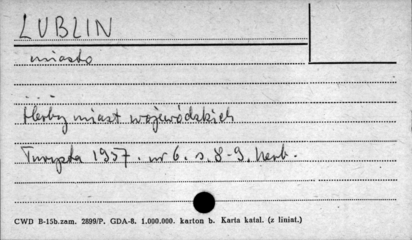 LUBLIN
miasto
...
Herby miast wojewódzkich
Turysta 1957. nr 6. s. 8-9. herb.
CWD B-15b.zam. 2899/P. GDA-8. 1.000.000. karton b. Karta katal. (z liniat.)